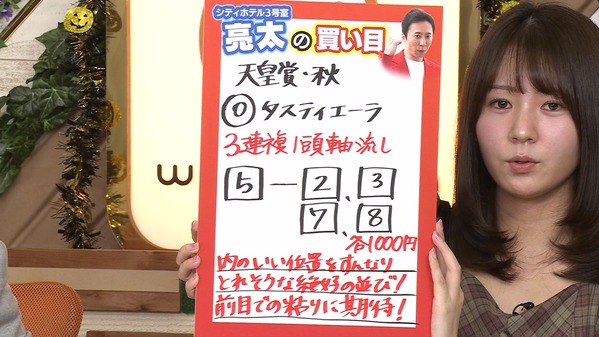 シティホテル3号室
亮太の買い目
天皇賞・秋
◎タスティエーラ
3連複1頭軸流し
5-2、3
7、8
各1000円
内のいい位置をすんなり
とれそうな絶好の並び!
前目での粘りに期待!
W